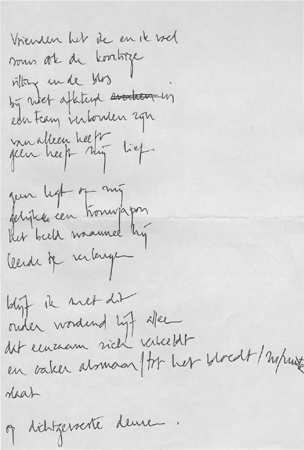 Vrienden heb ik en ik voel
soms ook de koortsige
rilling en de blos
bij niet aflatend in
een team verbonden zijn
van alleen heeft
geen heeft mij lief.
geen legt of mij
gelijk een trouwjapon
het beeld waarmee hij
leerde te verlangen
blijf ik met dit
ouder wordend lijf alleen
dat eenzaam zich verkeldt
en vaker alsmaar / tot het bloedt /
slaat
op dichtgeroeste deuren.